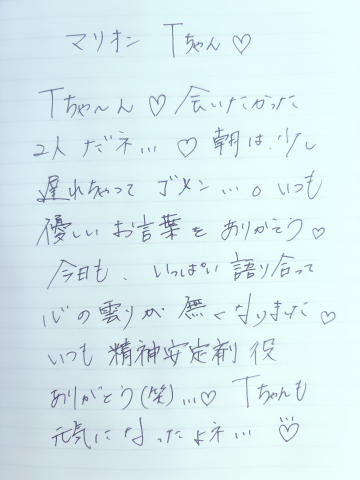 マリオン Tちゃん♡
Tちゃ〜ん♡会いたかった
2人だネ…♡朝は、少し
遅れちゃってゴメン…。いつも
優しいお言葉をありがとう♡
今日も、いっぱい語り合って
心の雲りが無くなりました♡
いつも精神安定剤役
ありがとう(笑)…♡Tちゃんも
元気になったよネ…♡